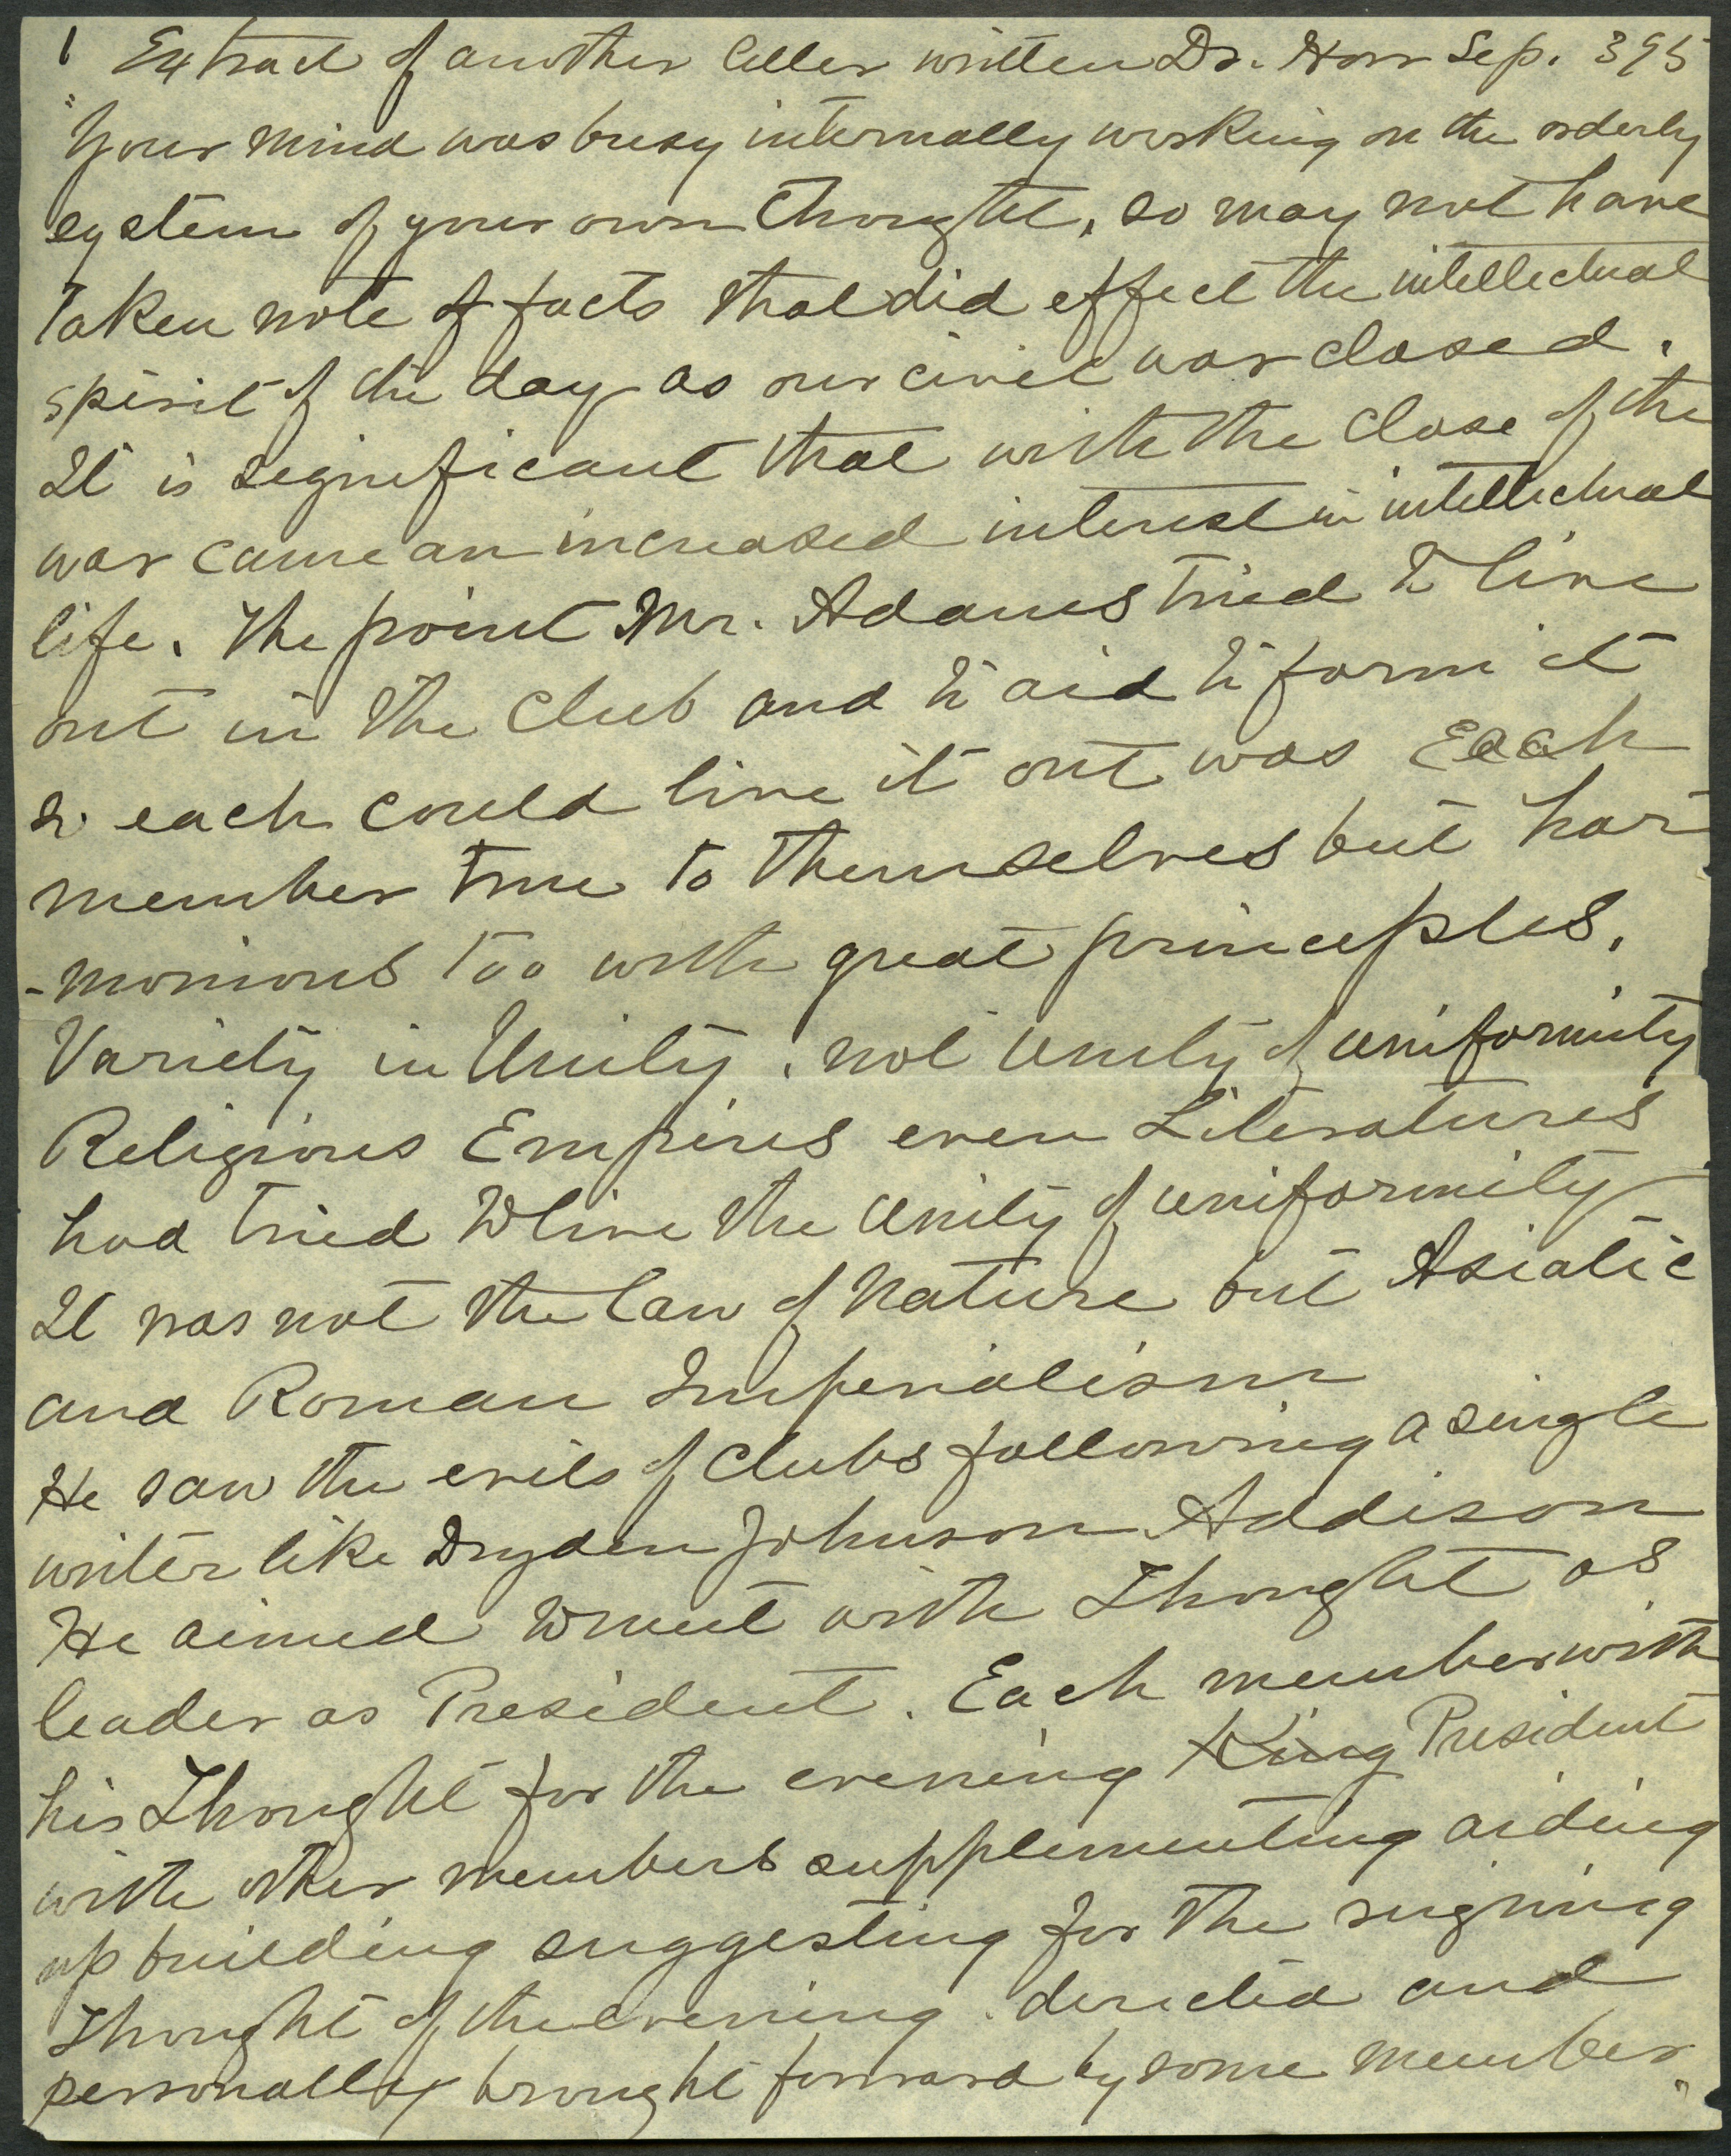 1 Extract of another letter written Dr. Horr Sep. 3 95
"Your mind was busy internally working on the orderly
system of your own thought, so may not have
taken note of facts that did effect the intellectual
spirit of the day as our civil war closed.
It is significant that with the close of the
war came an increased interest in intellectual
life. The point Mr. Adams tried to live
out in the Club and to aid to form it
so each could live it out was Each
member true to themselves but har
-monious too with great principles.
Variety in Unity. not unity of uniformity
Religious Empires even Literatures
had tried to live the Unity of uniformity
It was not the law of Nature but Asiatic
and Roman Imperialism
He saw the evils of Clubs following a single
writer like Dryden Johnson Addison
He aimed to meet with Thought as
leader as President. Each member with
his Thought for the evening King President
with other members supplementing aiding
up building suggesting for the reigning
Thought of the evening. directed and
personally brought forward by some member"